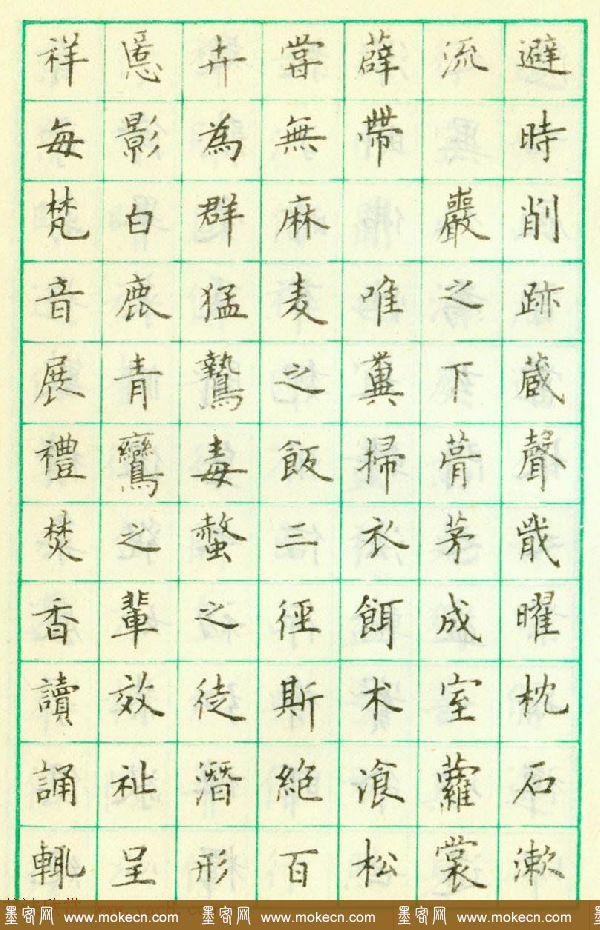 避時削跡蔵聲戢曜枕石漱
流巖之下葺茅成室蘿裳
薜帶唯糞掃衣餌术飡松
甞無麻麦之飯三徑斯絶百
卉為群猛鷙毒螫之徒潛形
匿影白鹿青鸞之輩效祉呈
祥每梵音展禮焚香讀誦輒
墨客网 www.mokecn.com 墨客网 www.mokecn.com 墨客网 www.mokecn.com